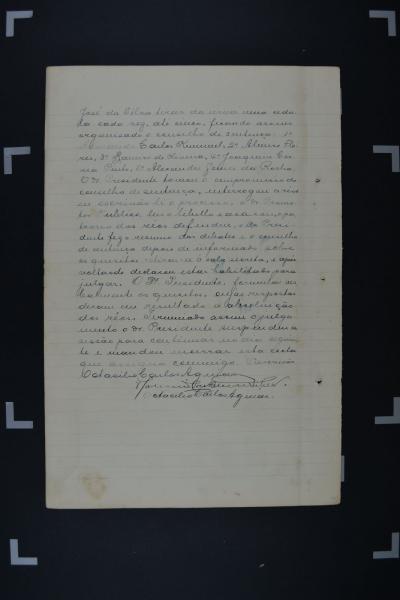 José da Silva tirar da urna uma cedu-
la cada vez, até cinco, ficando assim
organisado o conselho de sentença: 1º
Carlos Kummel, 2º Albino Flo-
res, 3º Ramiro de Oliveira, 4º Joaquim Cor-
rea Pinto, 5º Alexandre Gomes da Rocha.
O Dr. Presidente tomou o compromisso do
conselho de sentença, interrogou o réo
o escrivão leu o processo, o Dr. Promo-
tor Publico leu o libello e accusou, 
dos réos defendeu, o Dr. Presi-
dente fez o resumo dos debates e o conselho
de sentença depois de informado sobre
os quesitos retirou-se á sala secreta, e após
voltando declarou estar habilitado para
julgar. O Dr. Presidente formulou 
os quesitos, cujas respostas
deram em resultado a absolvição
dos réos. Terminado assim o julga-
mento o Dr. Presidente suspendeu a
sessão para continuar no dia seguin-
te e mandou lavrar esta acta
que assigna commigo. Escrivão
Octacilio Carlos Aguiar
Octacilio Carlos Aguiar.